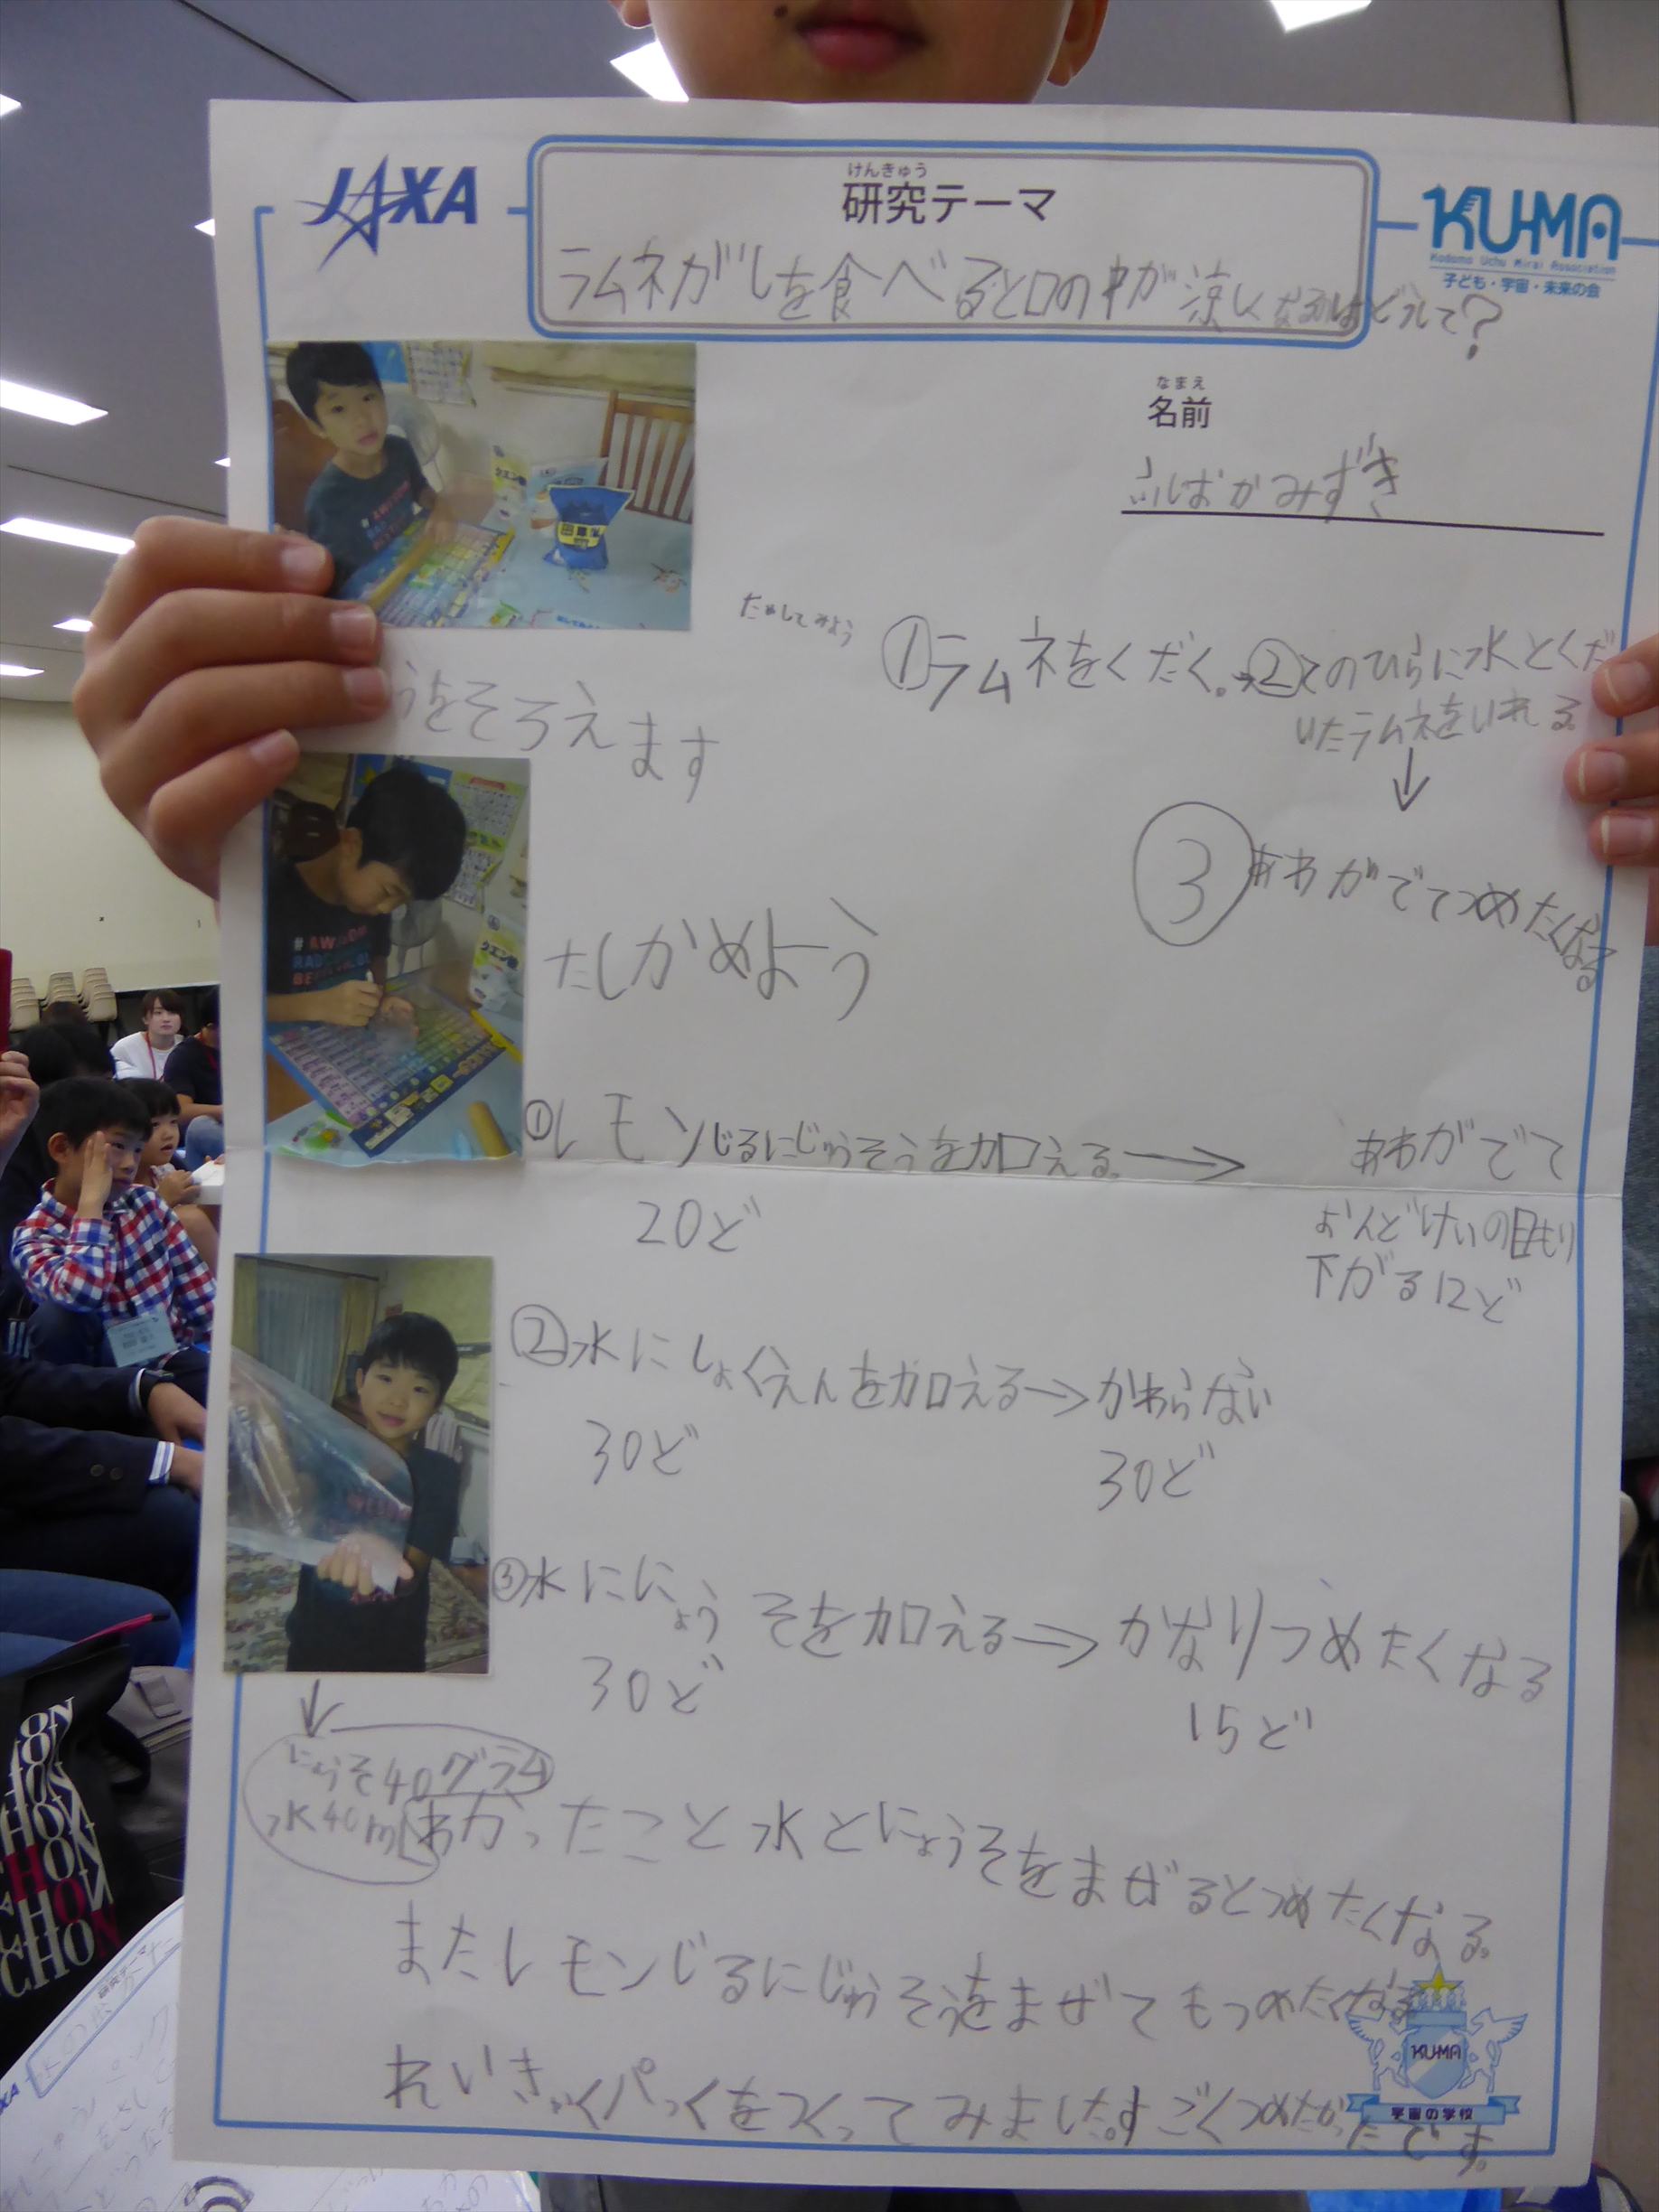 JAXA
けんきゅう
研究テーマ
KU-MA
Kodomo Uchu Mirai Association
子ども・宇宙・未来の会
ラムネがしを食べると口の中が涼しくなるのはどうして?
なまえ
名前
しばかみずき
クエン酸
ためしてみよう
①ラムネをくだく。→②てのひらに水とくだ
いたラムネをいれる。
↓
うをそろえます
③あわがでてつめたくなる
# AWESOME
クエン酸
たしかめよう
①レモンじるにじゅうそうを加える。→ あわがでて
20ど
おんどけいの目もり
下がる12ど
②水にしょくえんを加える→かわらない
30ど 30ど
③水ににょうそを加える→かなりつめたくなる
30ど 15ど
↓
にょうそ40グラム
水40ml
わかったこと水とにょうそをまぜるとつめたくなる。
またレモンじるにじゅうそうをまぜてもつめたくなる
れいきゃくパックをつくってみました。すごくつめたかったです。
KU-MA
宇宙の学校
CHON